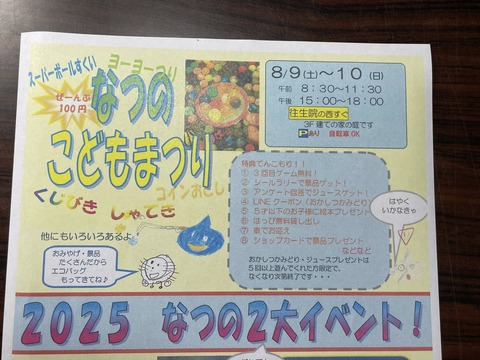 スーパーボールすくい
ヨーヨーつり
ぜーんぶ
100円
なつの
こどもまつり
コインおとし
くじびき しゃてき
他にもいろいろあるよ
おみやげ・景品
たくさんだから
エコバッグ
もってきてね♪
8/9(土)〜10(日)
午前 8:30〜11:30
午後 15:00〜18:00
往生院の西すぐ
3F建ての家の庭です
Pあり 自転車OK
特典てんこもり!!
① 3回目ゲーム無料!
② シールラリーで景品ゲット!
③ アンケート回答でジュースゲット!
④ LINEクーポン(おかしつかみどり)
⑤ 5才以下のお子様に絵本プレゼント
⑥ はっぴ無料貸し出し
⑦ 車でお迎え
⑧ ショップカードで景品プレゼント
などなど
おかしつかみどり・ジュースプレゼントは
5回以上遊んでくれた方限定で、
なくなり次第終了です・・・
はやく
いかなきゃ
2025 なつの2大イベント!